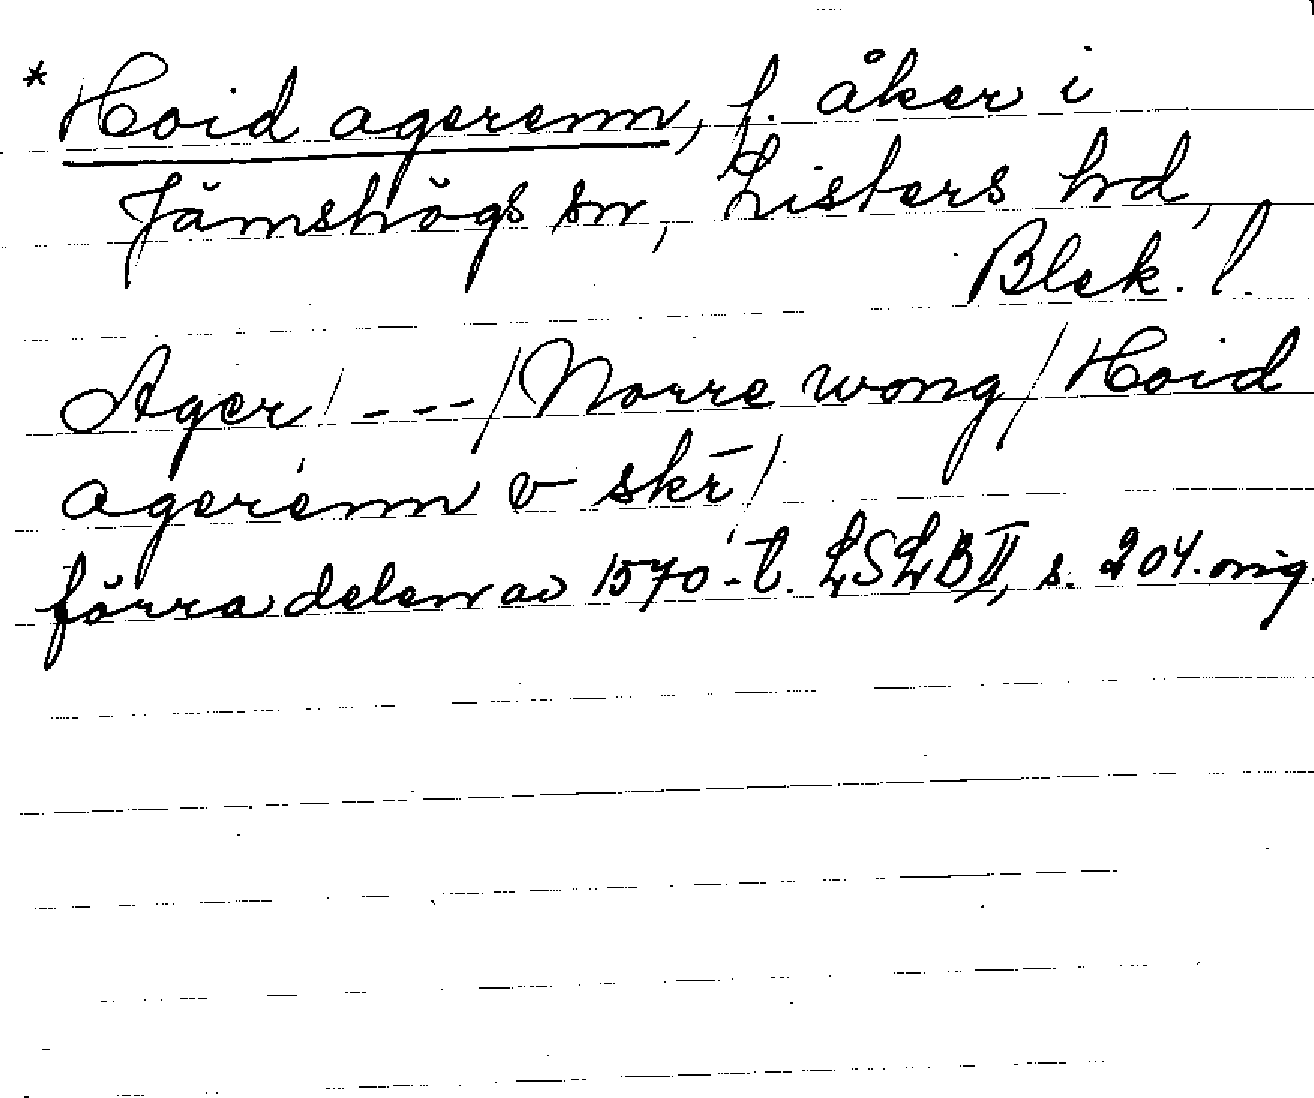 * Hoid agerenn, f. åker i
Jämshögs sn, Listers hd,
Blek. l.
Ager / --- / Norre wong / Hoid
agerenn v skr̄ /
förra delen av 1570-t. LSLB II, s. 204. orig